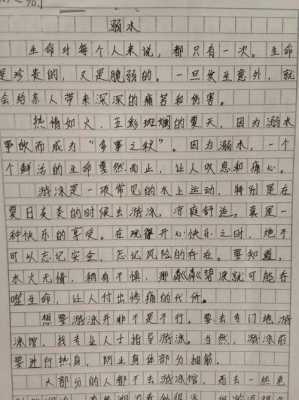 溺水
生命对每个人来说，都只有一次。生命
是珍贵的，又是脆弱的。一旦发生意外，就
会给亲人带来深深的痛苦和伤害。
热情如火，五彩斑斓的夏天，因为溺水
事故而成为“多事之秋”。因为溺水，一个
个鲜活的生命戛然而止，让人叹息和痛心。
游泳是一项常见的水上运动，特别是在
夏日炎炎的时候去游泳，清凉舒适，真是一
种快乐的享受。在玩得开心快乐之时，绝不
可以忘记安全，忘记风险的存在。要知道，
水火无情，稍有不慎，那碧波就可能吞
噬生命，让人付出惨痛的代价。
想要游泳并非不是不行。要去专门地游
泳馆，找专业人士指导游泳。当然，游泳前
要进行热身，防止身体部分抽筋。
大部分的人都不去游泳馆，而去一些危